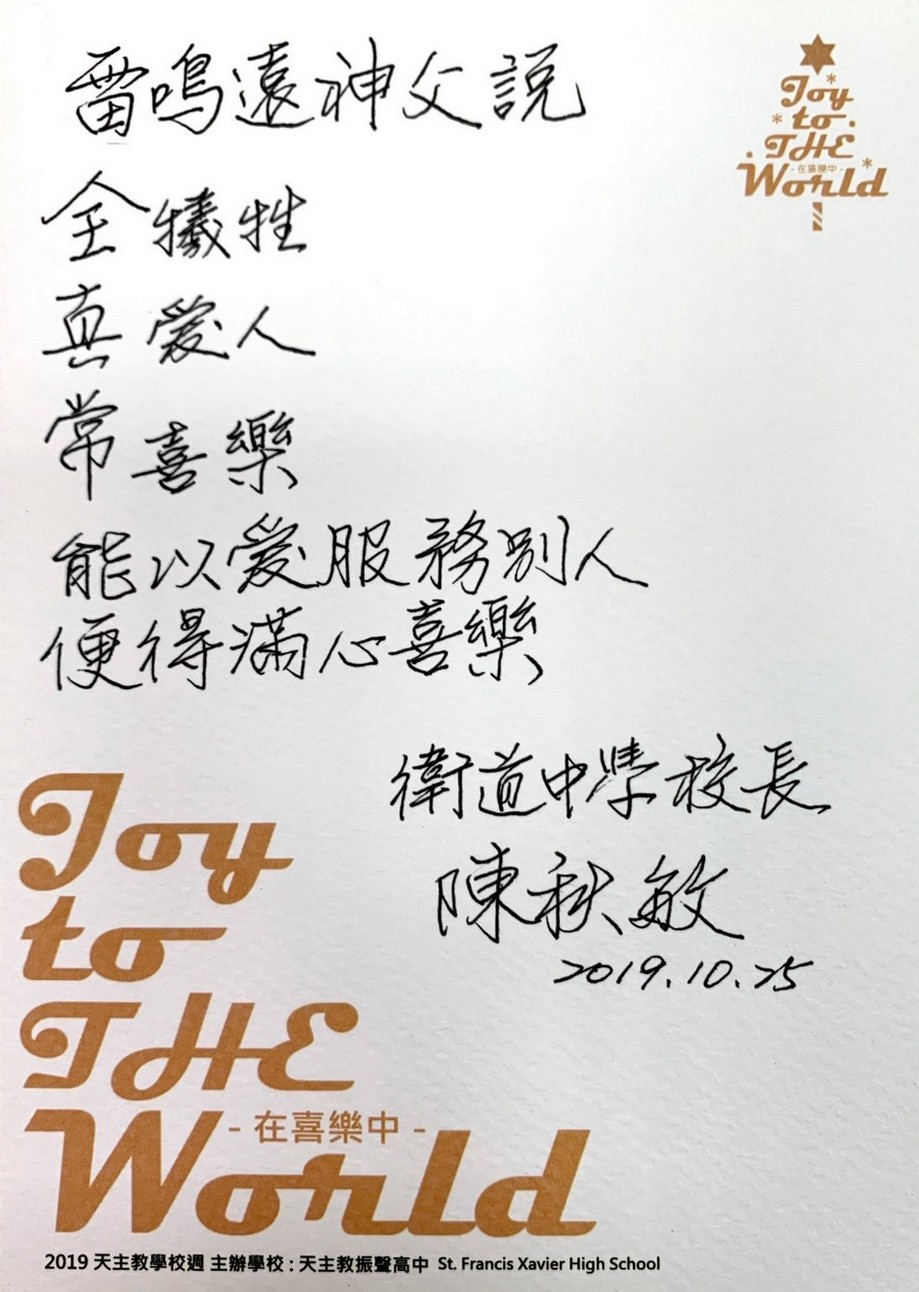 雷鳴遠神父説
全犧牲
真愛人
常喜樂
能以愛服務別人
便得滿心喜樂
衛道中學校長
陳秋敏
2019.10.25
Joy
to
THE
- 在喜樂中 -
World
Joy
to
THE
- 在喜樂中 -
World
2019 天主教學校週 主辦學校 : 天主教振聲高中 St. Francis Xavier High School